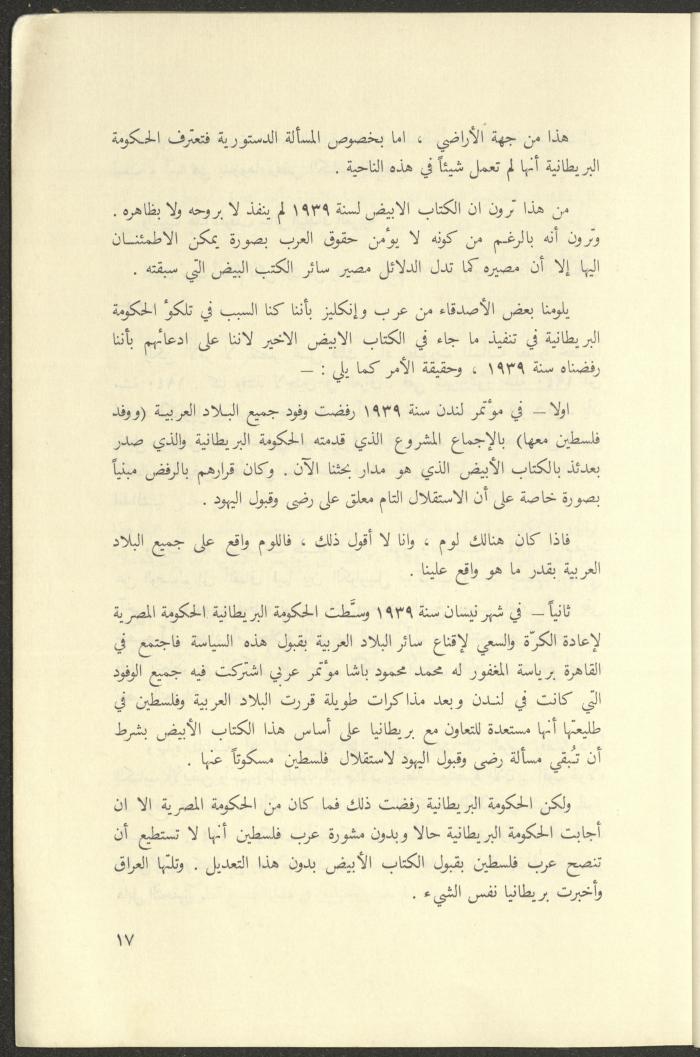 هذا من جهة الأراضي ، اما بخصوص المسألة الدستورية فتعترف الحكومة
البريطانية أنها لم تعمل شيئاً في هذه الناحية .
من هذا ترون ان الكتاب الابيض لسنة ١٩٣٩ لم ينفذ لا بروحه ولا بظاهره .
وترون أنه بالرغم من كونه لا يؤمن حقوق العرب بصورة يمكن الاطمئنان
اليها إلا أن مصيره كما تدل الدلائل مصير سائر الكتب البيض التي سبقته .
يلومنا بعض الأصدقاء من عرب وإنكليز بأننا كنا السبب في تلكوٴ الحكومة
البريطانية في تنفيذ ما جاء في الكتاب الابيض الاخير لاننا على ادعائهم بأننا
رفضناه سنة ١٩٣٩ ، وحقيقة الأمر كما يلي : —
اولا — في موٴتمر لندن سنة ١٩٣٩ رفضت وفود جميع البلاد العربية (ووفد
فلسطين معها) بالإجماع المشروع الذي قدمته الحكومة البريطانية والذي صدر
بعدئذ بالكتاب الأبيض الذي هو مدار بحثنا الآن . وكان قرارهم بالرفض مبنياً
بصورة خاصة على أن الاستقلال التام معلق على رضى وقبول اليهود .
فاذا كان هنالك لوم ، وانا لا أقول ذلك ، فاللوم واقع على جميع البلاد
العربية بقدر ما هو واقع علينا .
ثانياً — في شهر نيسان سنة ١٩٣٩ وسَّطت الحكومة البريطانية الحكومة المصرية
لإعادة الكرّة والسعي لإقناع سائر البلاد العربية بقبول هذه السياسة فاجتمع في
القاهرة برياسة المغفور له محمد محمود باشا موٴتمر عربي اشتركت فيه جميع الوفود
التي كانت في لندن وبعد مذاكرات طويلة قررت البلاد العربية وفلسطين في
طليعتها أنها مستعدة للتعاون مع بريطانيا على أساس هذا الكتاب الأبيض بشرط
أن تُبقي مسألة رضى وقبول اليهود لاستقلال فلسطين مسكوتاً عنها .
ولكن الحكومة البريطانية رفضت ذلك فما كان من الحكومة المصرية الا ان
أجابت الحكومة البريطانية حالا وبدون مشورة عرب فلسطين أنها لا تستطيع أن
تنصح عرب فلسطين بقبول الكتاب الأبيض بدون هذا التعديل . وتلتها العراق
وأخبرت بريطانيا نفس الشيء .
١٧